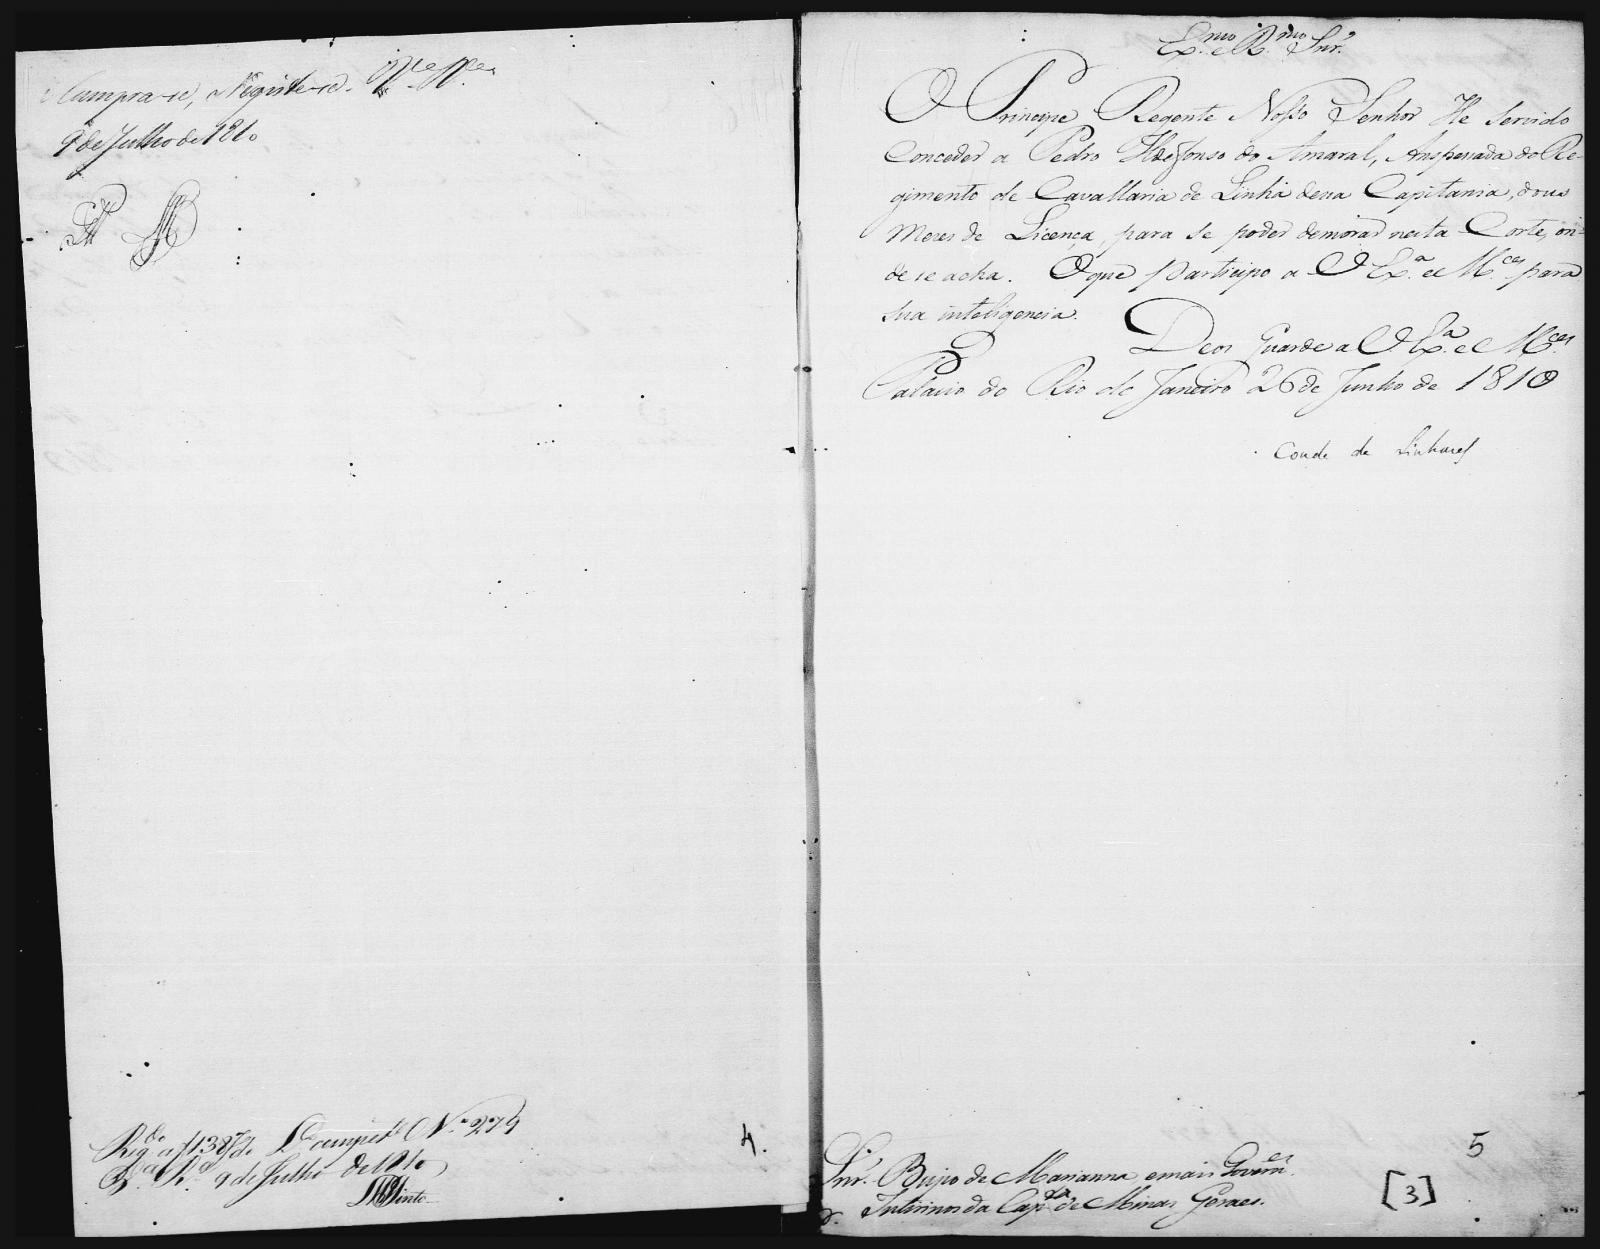 Cumpra-se, Registe-se.
9 de Julho de 1810
Reg.do a f 138 do L.o compete N.o 274
V.a R.a 9 de Julho de 1810
Pinto
4.
Ex.mo e R.mo Snr.
O Principe Regente Nosso Senhor He Servido
Conceder a Pedro Ildefonso do Amaral, Anspessada do Re-
gimento de Cavallaria de Linha dessa Capitania, dous
Mezes de Licença, para se poder demorar nesta Corte, on-
de se acha. O que participo a V. Ex.a e M.ces para
sua inteligencia.
Deos Guarde a V. Ex.a e M.ces
Palacio do Rio de Janeiro 26 de Junho de 1810
Conde de Linhares
Snr. Bispo de Marianna e mais Govern.es
Interinos da Cap.nia de Minas Geraes.
5
[3]